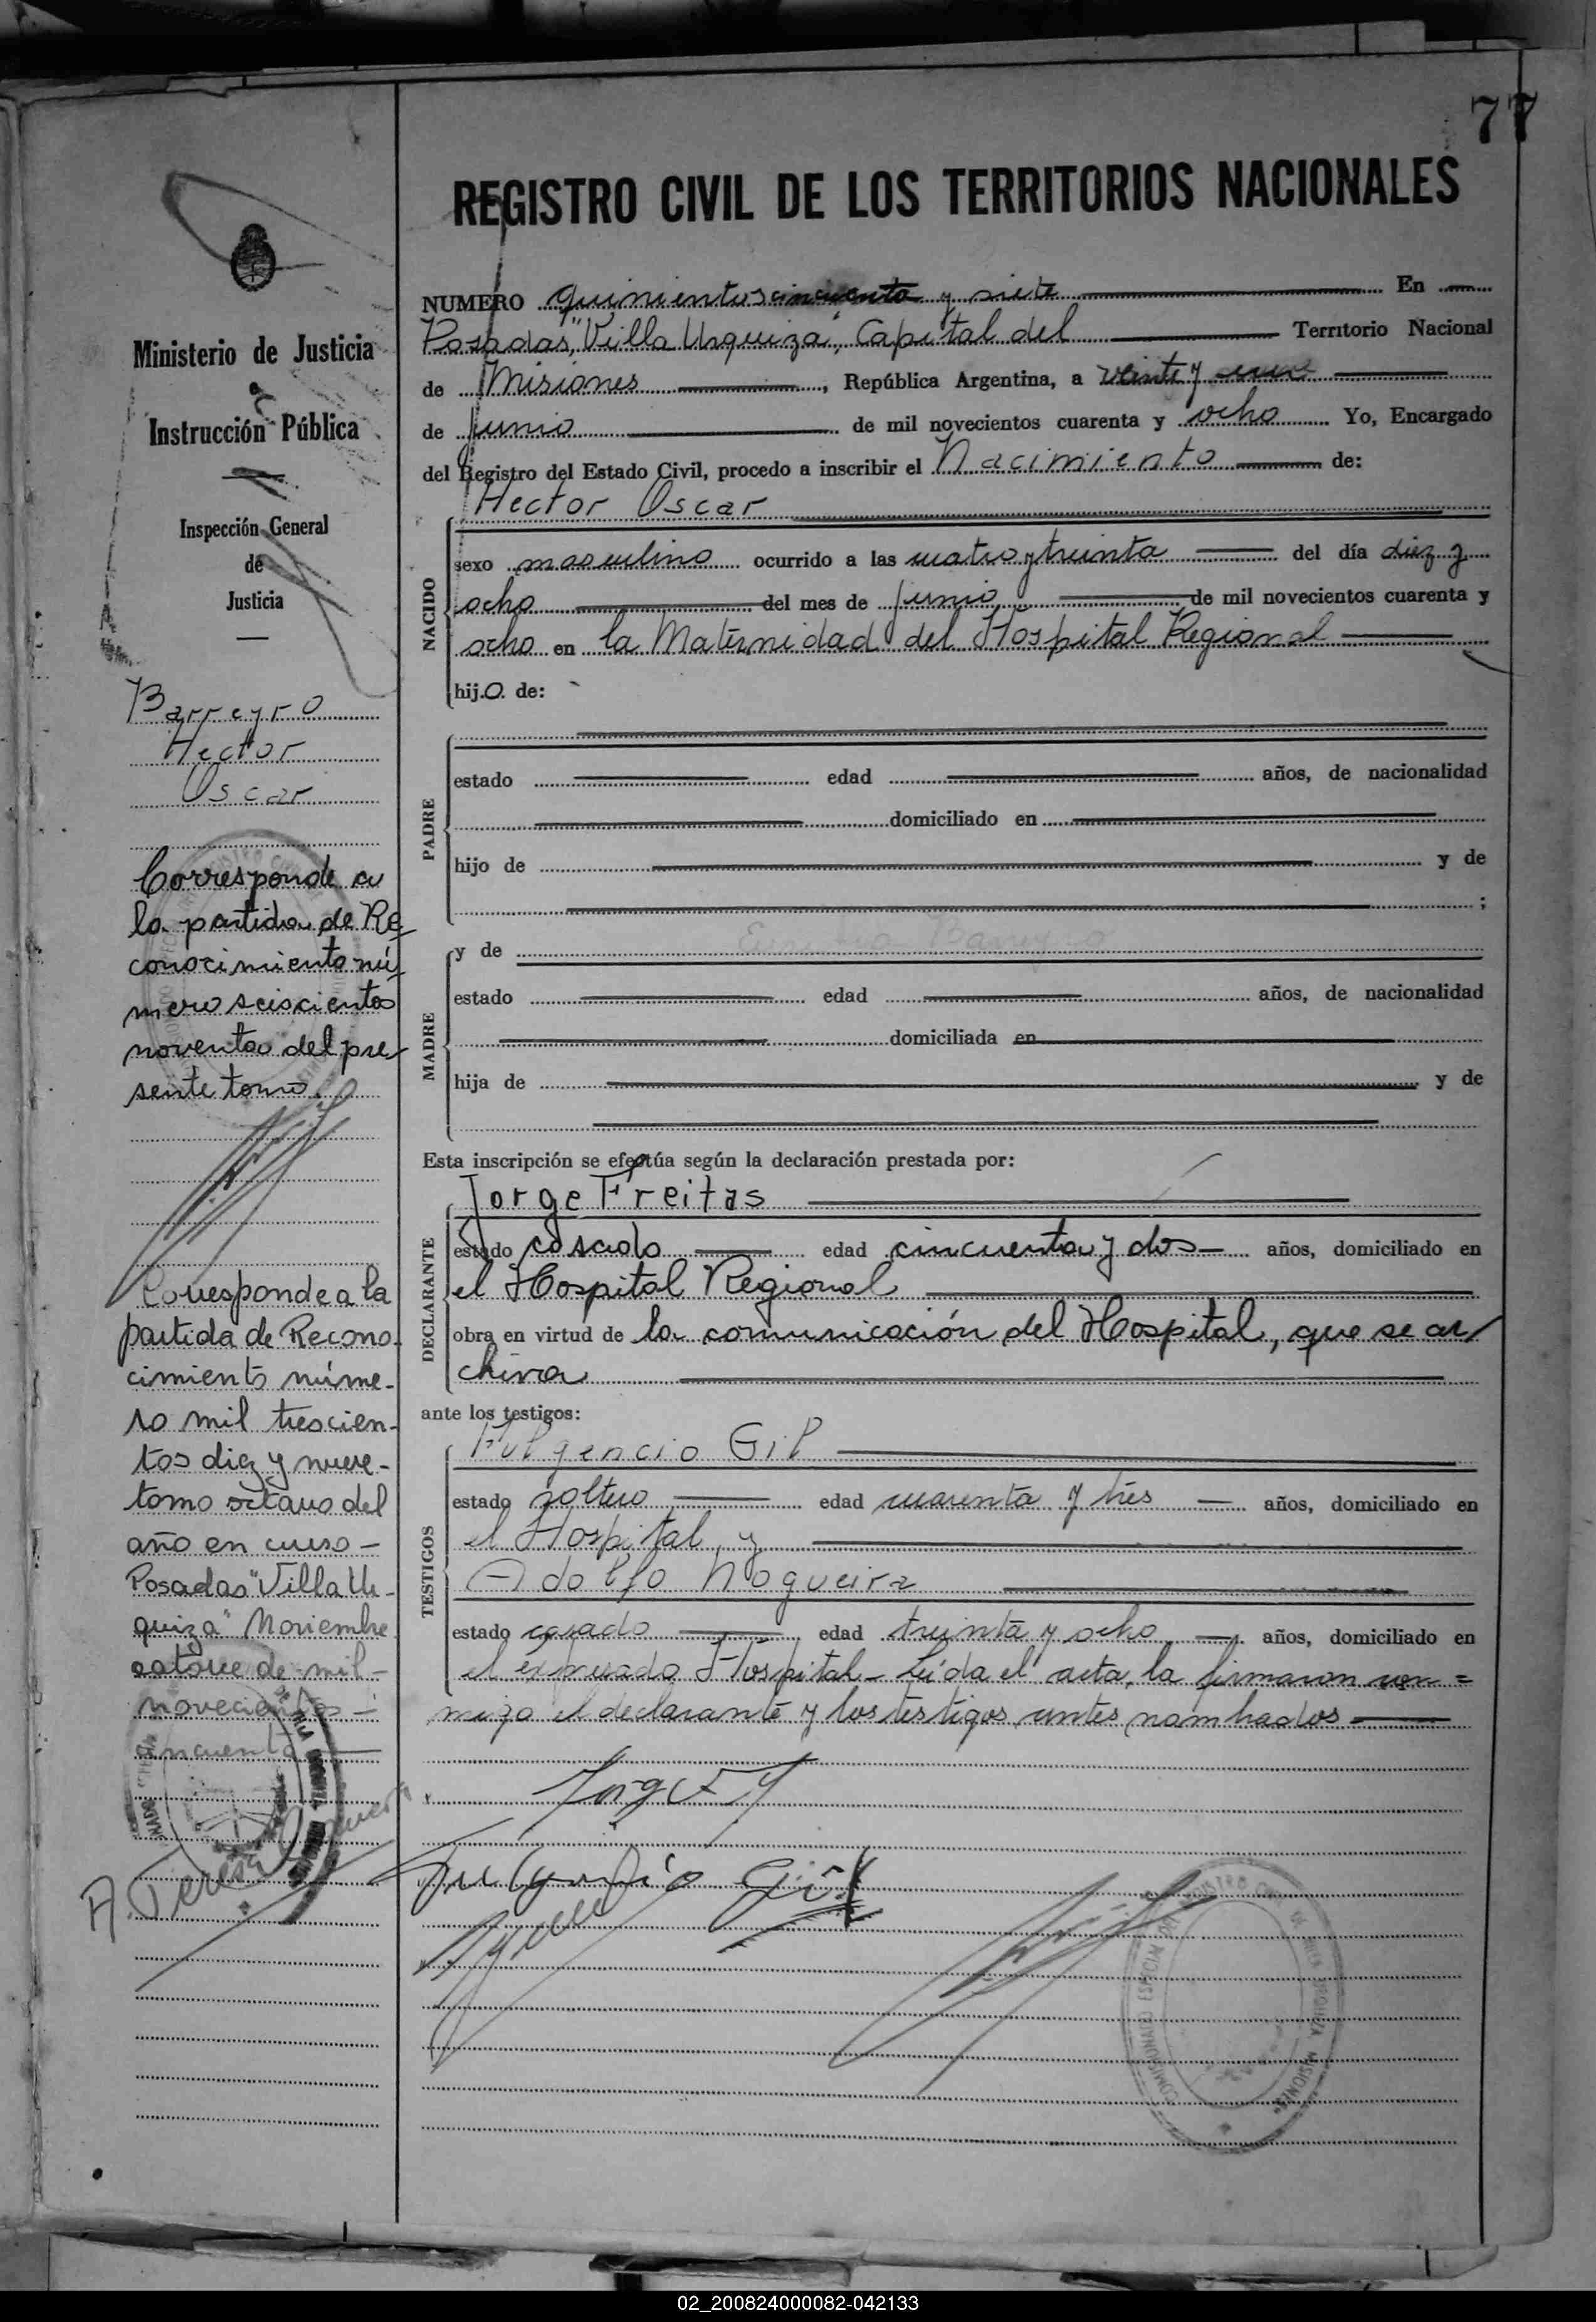 77
REGISTRO CIVIL DE LOS TERRITORIOS NACIONALES
Ministerio de Justicia
e
Instrucción Pública
Inspección General
de
Justicia
Barreyro
Hector
Oscar
Corresponde a
la partida de Re-
conocimiento nú-
mero seiscientos
noventa del pre-
sente tomo.
Corresponde a la
partida de Recono-
cimiento núme-
ro mil trescien-
tos diez y nueve -
tomo octavo del
año en curso -
Posadas "Villa Ur-
quiza" Noviembre
catorce de mil -
novecientos -
cincuenta
A. Teresa
NUMERO quinientos cincuenta y siete En
Posadas, "Villa Urquiza", Capital del Territorio Nacional
de Misiones, República Argentina, a veinte y
de junio de mil novecientos cuarenta y ocho Yo, Encargado
del Registro del Estado Civil, procedo a inscribir el Nacimiento de:
Hector Oscar
NACIDO
sexo masculino ocurrido a las cuatro y treinta del día diez y
ocho del mes de junio de mil novecientos cuarenta y
ocho en la Maternidad del Hospital Regional
hij.o. de:
PADRE
estado edad años, de nacionalidad
domiciliado en
hijo de y de
;
MADRE
y de Barreyro
estado edad años, de nacionalidad
domiciliada en
hija de y de
Esta inscripción se efectúa según la declaración prestada por:
DECLARANTE
Jorge Freitas
estado casado edad cincuenta y dos años, domiciliado en
el Hospital Regional
obra en virtud de la comunicación del Hospital, que se ar-
chiva
ante los testigos:
TESTIGOS
Fulgencio Gil
estado soltero edad cuarenta y tres años, domiciliado en
el Hospital y
Adolfo Nogueira
estado casado edad treinta y ocho años, domiciliado en
el expresado Hospital - Leída el acta, la firmaron con =
migo el declarante y los testigos antes nombrados
Jorge F
Fulgencio Gil
COMISIONADO ESPECIAL DEL REGISTRO CIVIL DE VILLA URQUIZA MISIONES
02_200824000082-042133